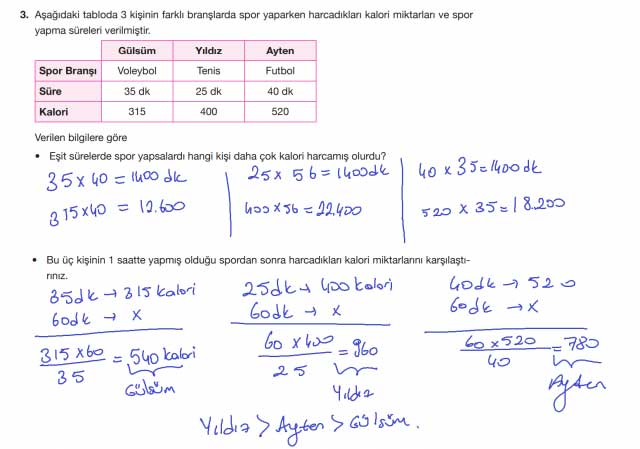 3. Aşağıdaki tabloda 3 kişinin farklı branşlarda spor yaparken harcadıkları kalori miktarları ve spor
yapma süreleri verilmiştir.
Gülsüm Yıldız Ayten
Spor Branşı Voleybol Tenis Futbol
Süre 35 dk 25 dk 40 dk
Kalori 315 400 520
Verilen bilgilere göre
• Eşit sürelerde spor yapsalardı hangi kişi daha çok kalori harcamış olurdu?
35 x 40 = 1400 dk
315 x 40 = 12.600
25 x 56 = 1400 dk
400 x 56 = 22.400
40 x 35 = 1400 dk
520 x 35 = 18.200
• Bu üç kişinin 1 saatte yapmış olduğu spordan sonra harcadıkları kalori miktarlarını karşılaştı-
rınız.
35dk → 315 kalori
60dk → x
315 x 60
35
= 540 kalori
Gülsüm
25dk → 400 kalori
60dk → x
60 x 400
25
= 960
Yıldız
40dk → 520
60dk → x
60 x 520
40
= 780
Ayten
Yıldız > Ayten > Gülsüm.